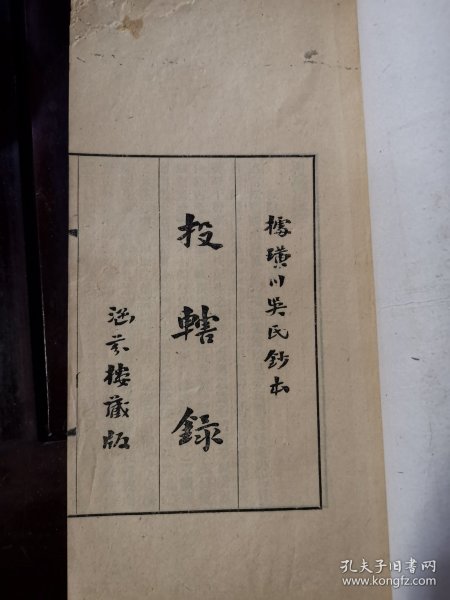 據璜川吳氏鈔本
投轄錄
涵芬樓藏版
孔夫子旧书网
www.kongfz.com